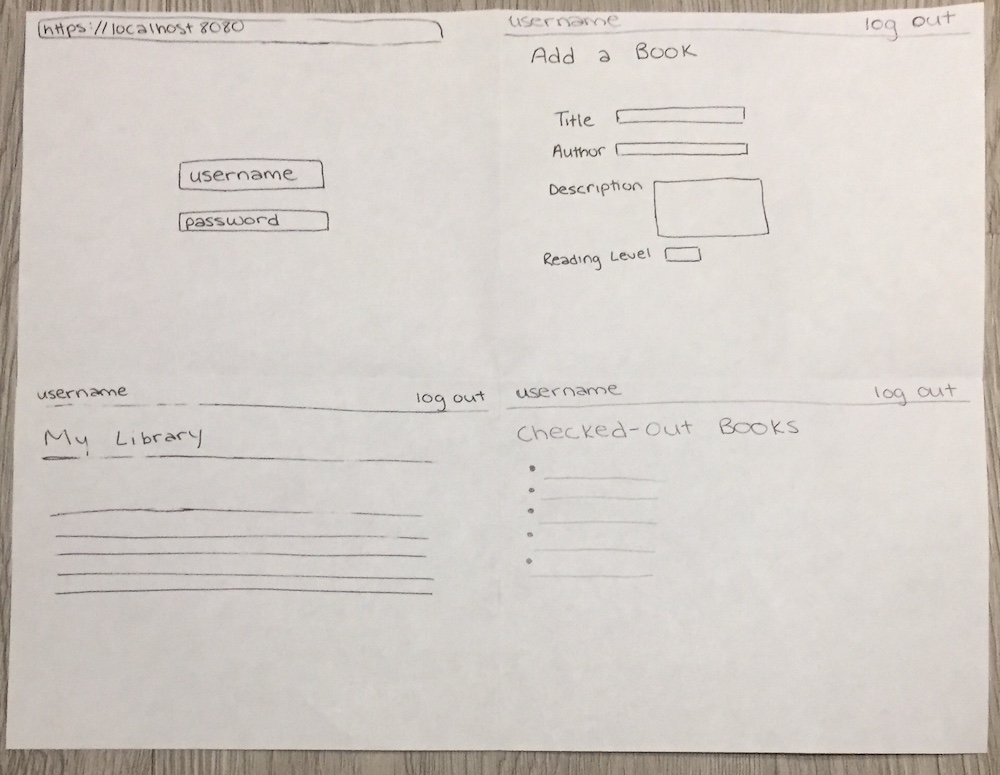 https://localhost 8080
username
password
username log out
Add a Book
Title
Author
Description
Reading Level
username log out
My Library
username log out
Checked-Out Books